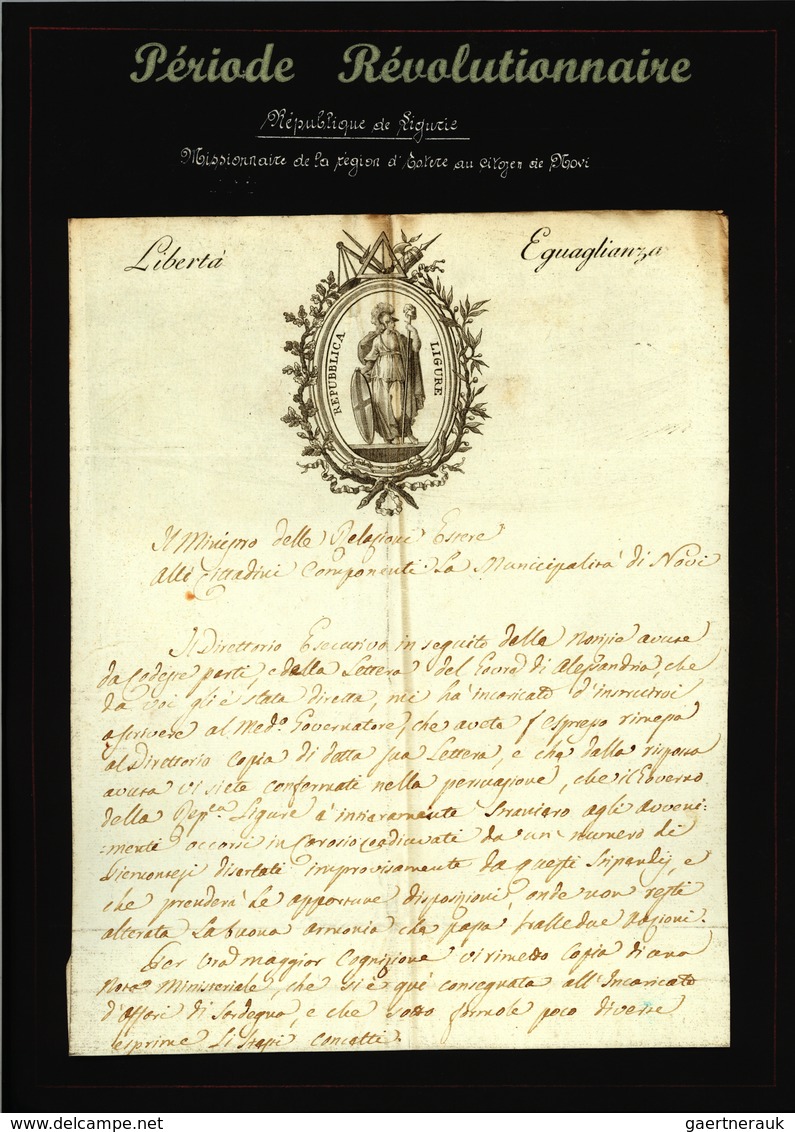 Période Révolutionnaire
République de Ligurie
Missionnaire de la région d'Estere au citoyen de Novi
Libertà
Eguaglianza
REPUBBLICA LIGURE
Il Ministro delle Relazioni Estere
Alli Cittadini Componenti La Municipalità di Novi
Il Direttorio Esecutivo in seguito delle Notizie avute
da Codeste parti, e dalla Lettera del Govre di Alessandria, che
da voi gli è stata diretta, mi hà incaricato d'instruirvi
a scrivere al Medo Governatore, che avete espresso rimessa
al Direttorio Copia di detta sua Lettera, e che dalla risposta
avuta vi siete confermati nella persuasione, che il Governo
della Repca Ligure è intieramente straniero agli avveni=
=menti occorsi in Carosio coadiuvati da un numero di
Piemontesi disertati improvisamente da questi Stipendj, e
che prenderà le opportune disposizioni, onde non resti
alterata la buona armonia che passa tralle due Nazioni.
Per vra maggior Cognizione vi rimetto Copia di una
Nota Ministeriale, che si è quì consegnata all'Incaricato
d'Affari di Sardegna, e che sotto formole poco diverse
esprime li stessi Concetti.
delcampe.net
gaertnerauk